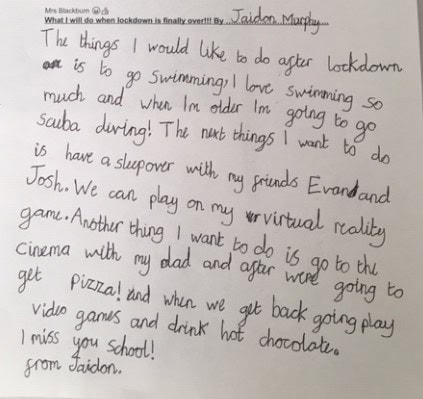 Mrs Blackburn
What I will do when lockdown is finally over!!! By ..Jaidon Murphy...
The things I would like to do after lockdown
is to go swimming, I love swimming so
much and when Im older Im going to go
scuba diving! The next things I want to do
is have a sleepover with my friends Evan and
Josh. We can play on my virtual reality
game. Another thing I want to do is go to the
cinema with my dad and after were going to
get pizza! And when we get back going play
video games and drink hot chocolate.
I miss you school!
from Jaidon.